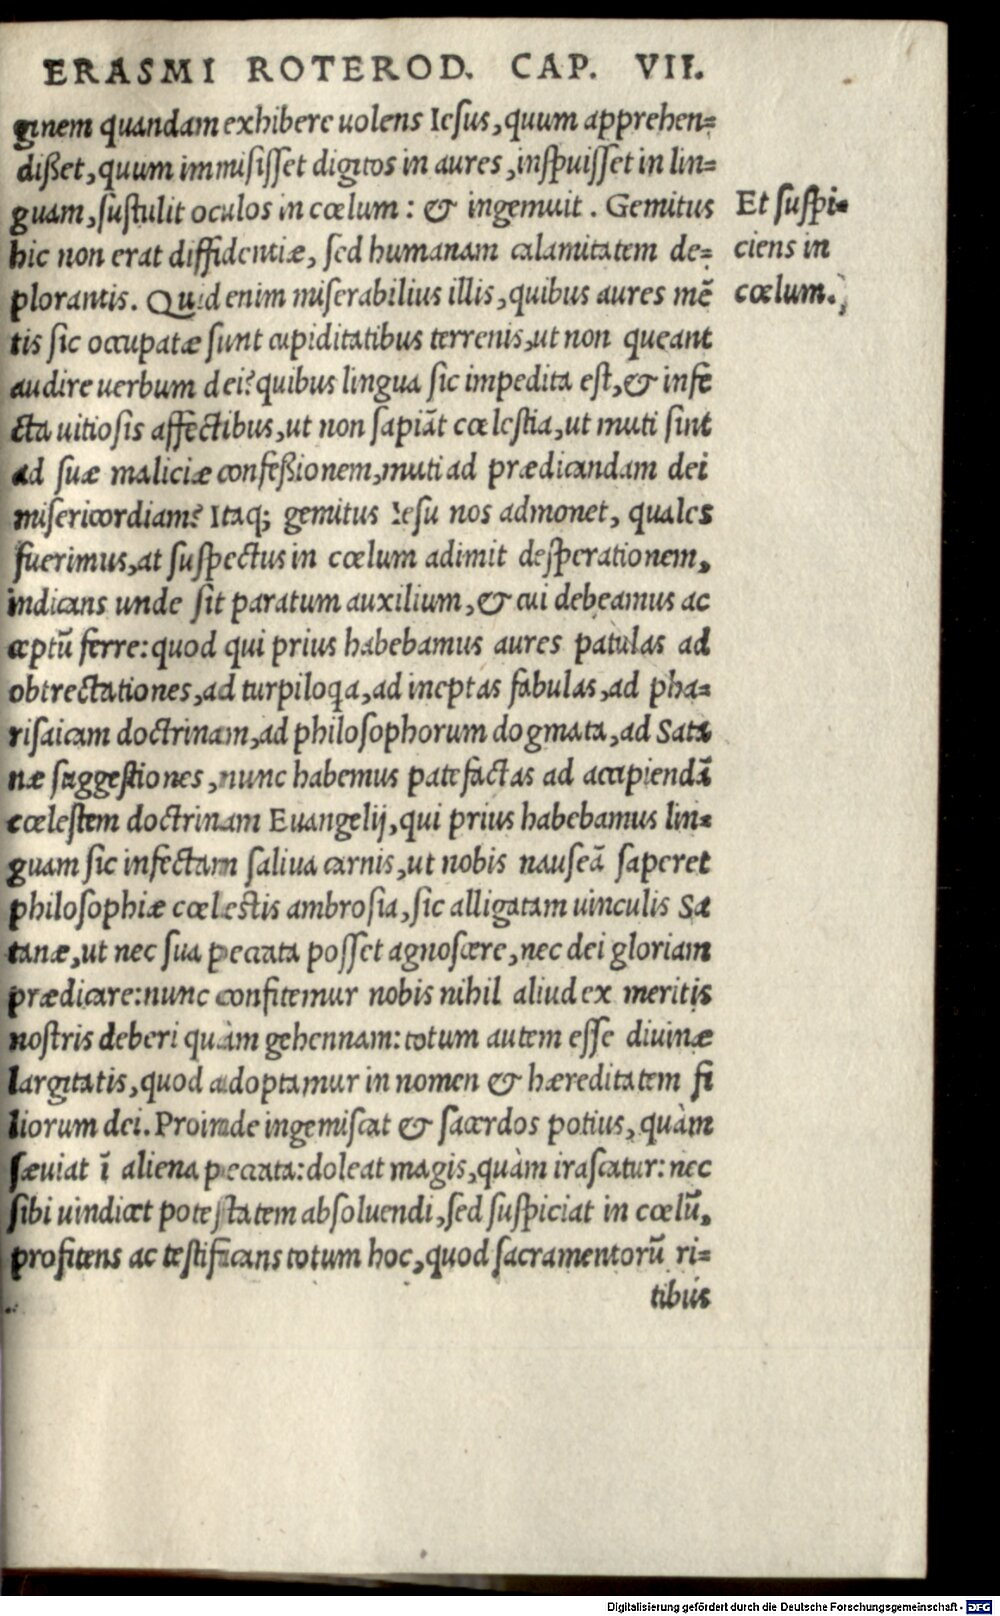 ERASMI ROTEROD. CAP. VII.
ginem quandam exhibere uolens Iesus, quum apprehen=
dißet, quum immisisset digitos in aures, inspuisset in lin=
guam, sustulit oculos in cœlum: & ingemuit. Gemitus
hic non erat diffidentiæ, sed humanam calamitatem de=
plorantis. Quid enim miserabilius illis, quibus aures mẽ
tis sic occupatæ sunt cupiditatibus terrenis, ut non queant
audire uerbum dei? quibus lingua sic impedita est, & infe
cta uitiosis affectibus, ut non sapiãt cœlestia, ut muti sint
ad suæ maliciæ confeßionem, muti ad prædicandam dei
misericordiam? Itaq; gemitus Iesu nos admonet, quales
fuerimus, at suspectus in cœlum adimit desperationem,
indicans unde sit paratum auxilium, & cui debeamus ac
ceptũ ferre: quod qui prius habebamus aures patulas ad
obtrectationes, ad turpiloqa, ad ineptas fabulas, ad pha=
risaicam doctrinam, ad philosophorum dogmata, ad Sata
næ suggestiones, nunc habemus patefactas ad accipiendã
cœlestem doctrinam Euangelij, qui prius habebamus lin=
guam sic infectam saliua carnis, ut nobis nauseã saperet
philosophiæ cœlestis ambrosia, sic alligatam uinculis Sa
tanæ, ut nec sua peccata posset agnoscere, nec dei gloriam
prædicare: nunc confitemur nobis nihil aliud ex meritis
nostris deberi quàm gehennam: totum autem esse diuinæ
largitatis, quod adoptamur in nomen & hæreditatem fi
liorum dei. Proinde ingemiscat & sacerdos potius, quàm
sæuiat ĩ aliena peccata: doleat magis, quàm irascatur: nec
sibi uindicet potestatem absoluendi, sed suspiciat in cœlũ,
profitens ac testificans totum hoc, quod sacramentorũ ri=
tibus
Et suspi=
ciens in
cœlum.
Digitalisierung gefördert durch die Deutsche Forschungsgemeinschaft - DFG